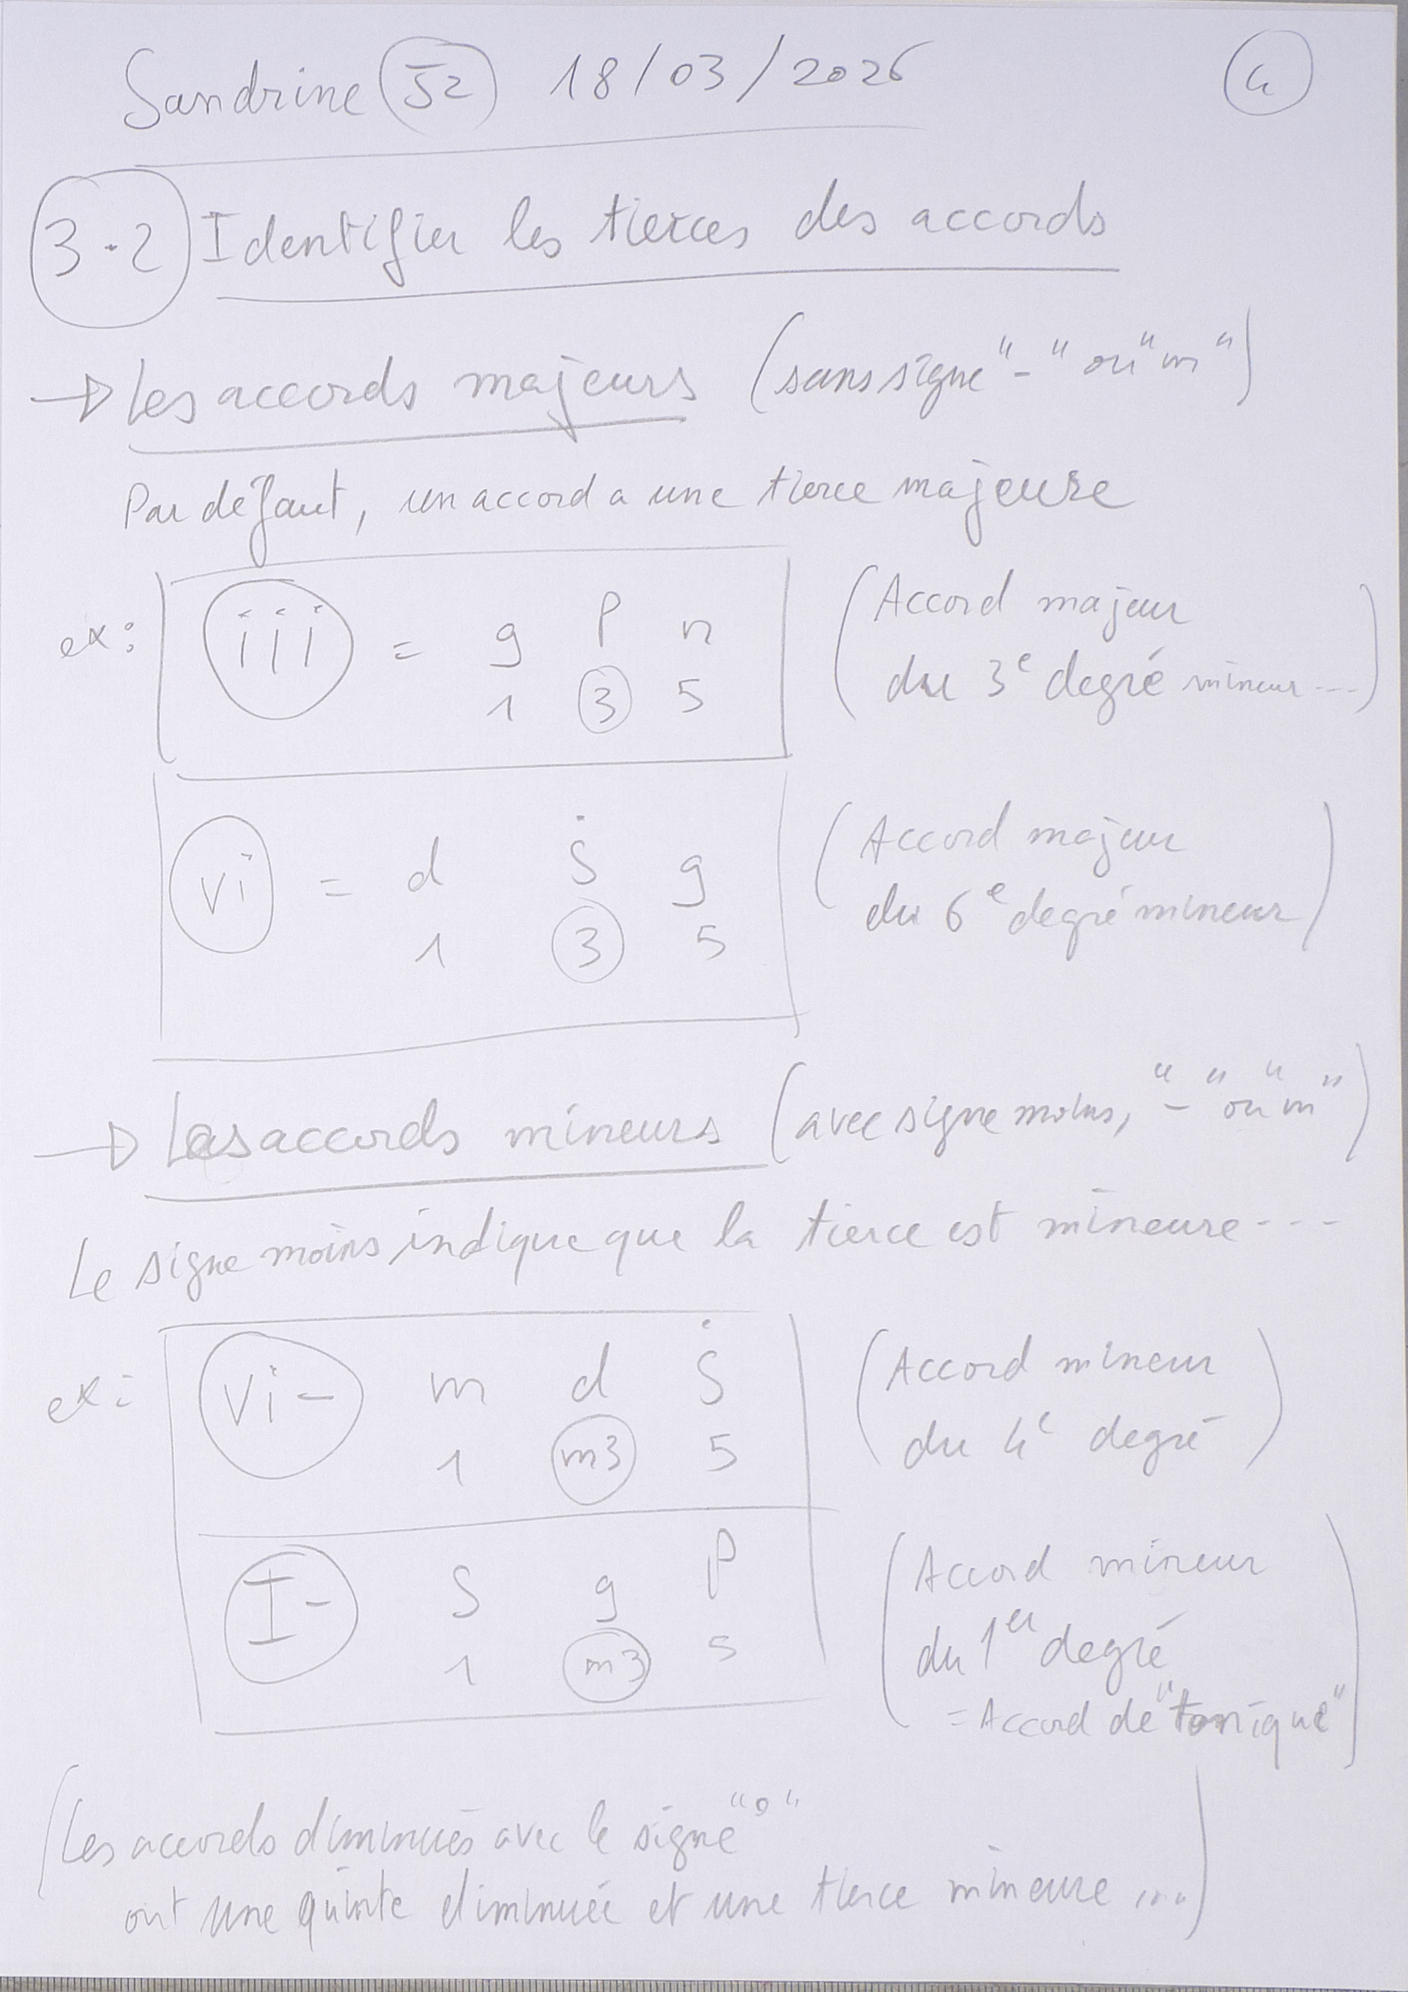 Sandrine 52 18/03/2026 4
3.2 Identifier les tierces des accords
→ Les accords majeurs (sans signe "-" ou "m")
Par défaut, un accord a une tierce majeure
ex: iii = g p n (Accord majeur
1 3 5 du 3e degré mineur ...)
vi = d ṡ g (Accord majeur
1 3 5 du 6e degré mineur)
→ Les accords mineurs (avec signe moins, "-" ou "m")
Le signe moins indique que la tierce est mineure ...
ex: vi- m d ṡ (Accord mineur
1 m3 5 du 4e degré)
I- S g p (Accord mineur
1 m3 5 du 1er degré
= Accord de "tonique")
(Les accords diminués avec le signe "o"
ont une quinte diminuée et une tierce mineure ...)